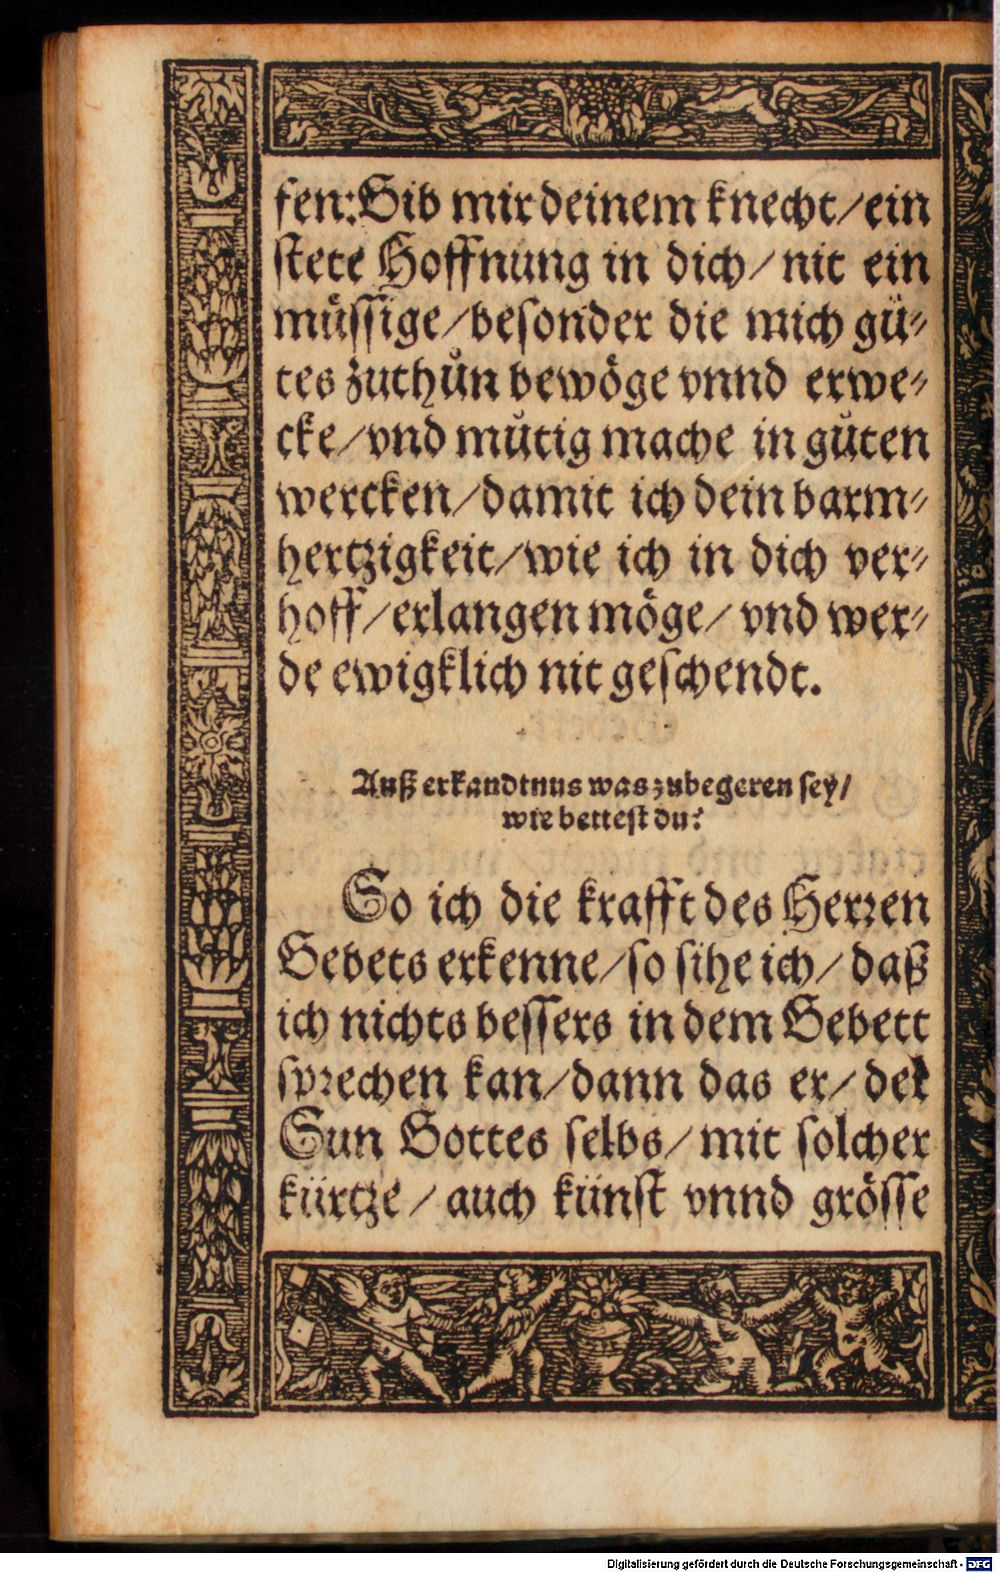 fen: Gib mir deinem knecht/ ein
stete Hoffnung in dich/ nit ein
müssige/ besonder die mich gů-
tes zuthůn bewöge vnnd erwe-
cke/ vnd můtig mache in gůten
wercken/ damit ich dein barm-
hertzigkeit/ wie ich in dich ver-
hoff/ erlangen möge/ vnd wer-
de ewigklich nit geschendt.
Auß erkandtnus was zubegeren sey/
wie bettest du?
So ich die krafft des Herren
Gebets erkenne/ so sihe ich/ daß
ich nichts bessers in dem Gebett
sprechen kan/ dann das er/ der
Sun Gottes selbs/ mit solcher
kürtze/ auch künst vnnd grösse
Digitalisierung gefördert durch die Deutsche Forschungsgemeinschaft - DFG